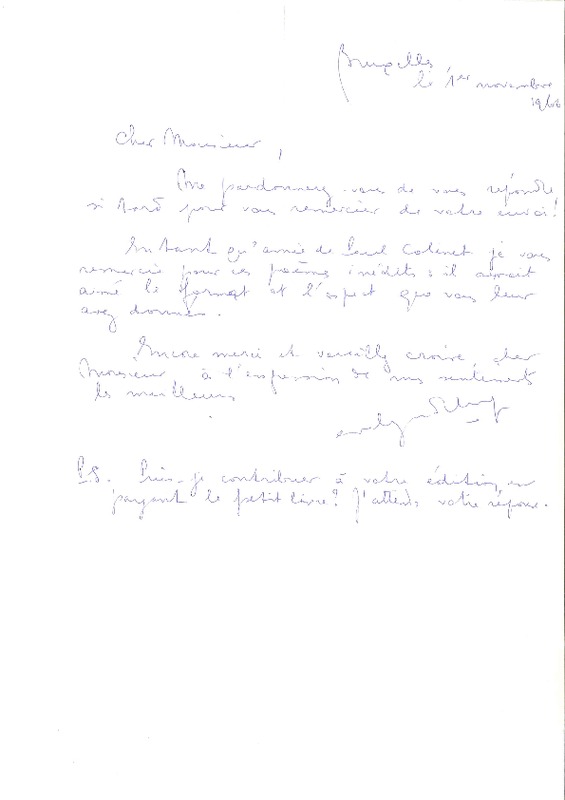 Bruxelles
le 1er novembre
Cher Monsieur,
Me pardonnerez-vous de vous répondre
si tard pour vous remercier de votre envoi!
En tant qu'amie de Paul Colinet je vous
remercie pour ces poèmes inédits; il aurait
aimé le format et l'aspect que vous leur
avez donnés.
Encore merci et veuillez croire, cher
Monsieur à l'expression de mes sentiments
les meilleurs
P.S. Puis-je contribuer à votre édition, en
payant le petit livre? J'attends votre réponse.